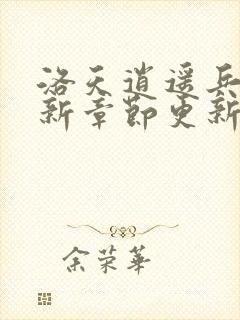 洛天逍遥兵
新章节更新
余荣华